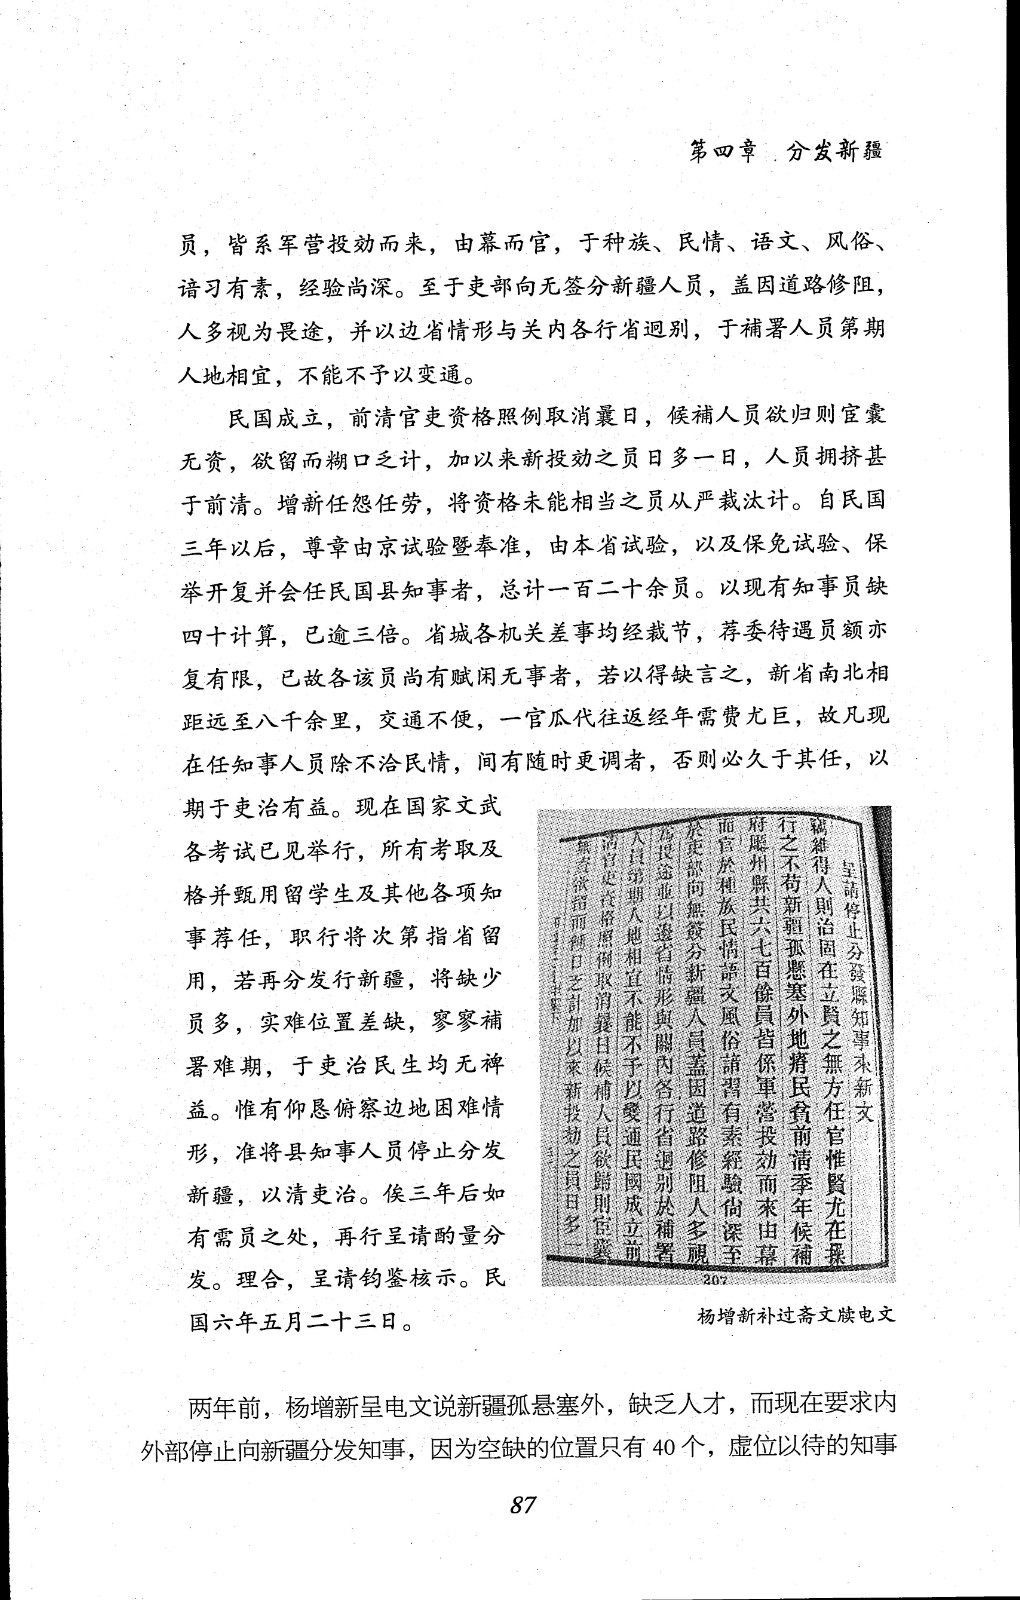 第四章 分发新疆
员，皆系军营投效而来，由幕而官，于种族、民情、语文、风俗、
谙习有素，经验尚深。至于吏部向无签分新疆人员，盖因道路修阻，
人多视为畏途，并以边省情形与关内各行省迥别，于補署人员第期
人地相宜，不能不予以变通。
民国成立，前清官吏资格照例取消曩日，候補人员欲归则宦囊
无资，欲留而糊口乏计，加以来新投効之员日多一日，人员拥挤甚
于前清。增新任怨任劳，将资格未能相当之员从严裁汰计。自民国
三年以后，尊章由京试验暨奉准，由本省试验，以及保免试验、保
举开复并会任民国县知事者，总计一百二十余员。以现有知事员缺
四十计算，已逾三倍。省城各机关差事均经裁节，荐委待遇员额亦
复有限，已故各该员尚有赋闲无事者，若以得缺言之，新省南北相
距远至八千余里，交通不便，一官瓜代往返经年需费尤巨，故凡现
在任知事人员除不洽民情，间有随时更调者，否则必久于其任，以
期于吏治有益。现在国家文武
各考试已见举行，所有考取及
格并甄用留学生及其他各项知
事荐任，职行将次第指省留
用，若再分发行新疆，将缺少
员多，实难位置差缺，寥寥補
署难期，于吏治民生均无裨
益。惟有仰恳俯察边地困难情
形，准将县知事人员停止分发
新疆，以清吏治。俟三年后如
有需员之处，再行呈请酌量分
发。理合，呈请钧鉴核示。民
国六年五月二十三日。
呈請停止分發縣知事來新文
竊維得人則治固在立賢之無方任官惟賢尤在操
行之不苟新疆孤懸塞外地瘠民貧前清季年候補
府廳州縣共六七百餘員皆係軍營投効而來由幕
而官於種族民情語文風俗諳習有素經驗尙深至
於吏部向無簽分新疆人員蓋因道路修阻人多視
為畏途並以邊省情形與關內各行省迥別於補署
人員第期人地相宜不能不予以變通民國成立前
清官吏資格照例取消曩日候補人員欲歸則宦囊
無資欲留而餬口乏計加以來新投効之員日多一
207
杨增新补过斋文牍电文
两年前，杨增新呈电文说新疆孤悬塞外，缺乏人才，而现在要求内
外部停止向新疆分发知事，因为空缺的位置只有 40 个，虚位以待的知事
87